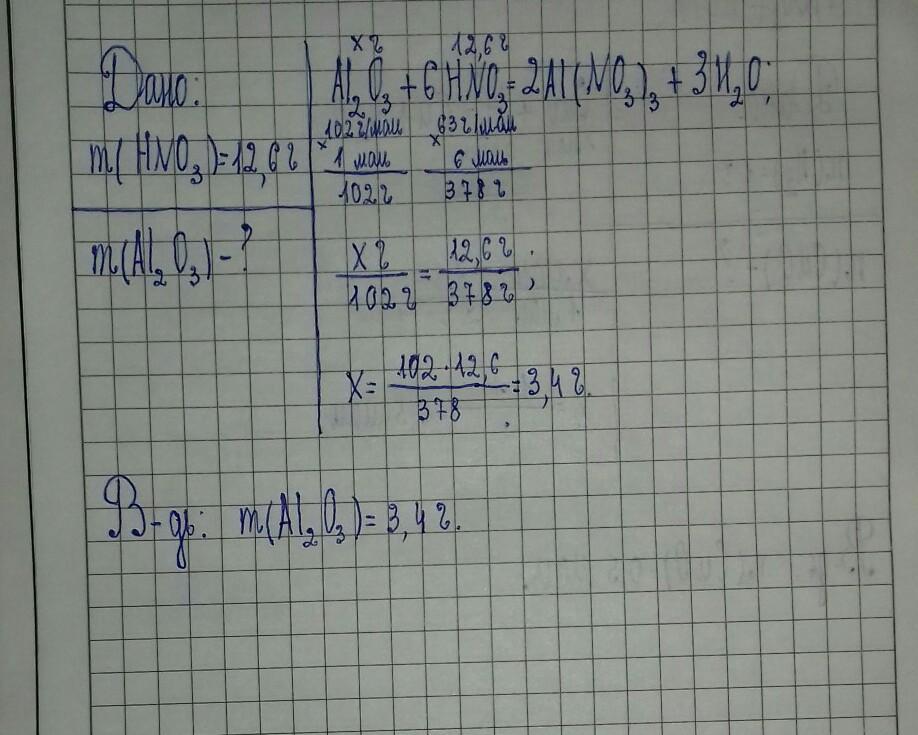 Дано:
m(HNO₃)=12,6г
m(Al₂O₃)-?
xг 12,6г
Al₂O₃+6HNO₃=2Al(NO₃)₃+3H₂O;
102г/моль 63г/моль
× 1 моль × 6 моль
102г 378г
xг/102г = 12,6г/378г;
x= 102·12,6/378 =3,4г.
В-дь: m(Al₂O₃)=3,4г.